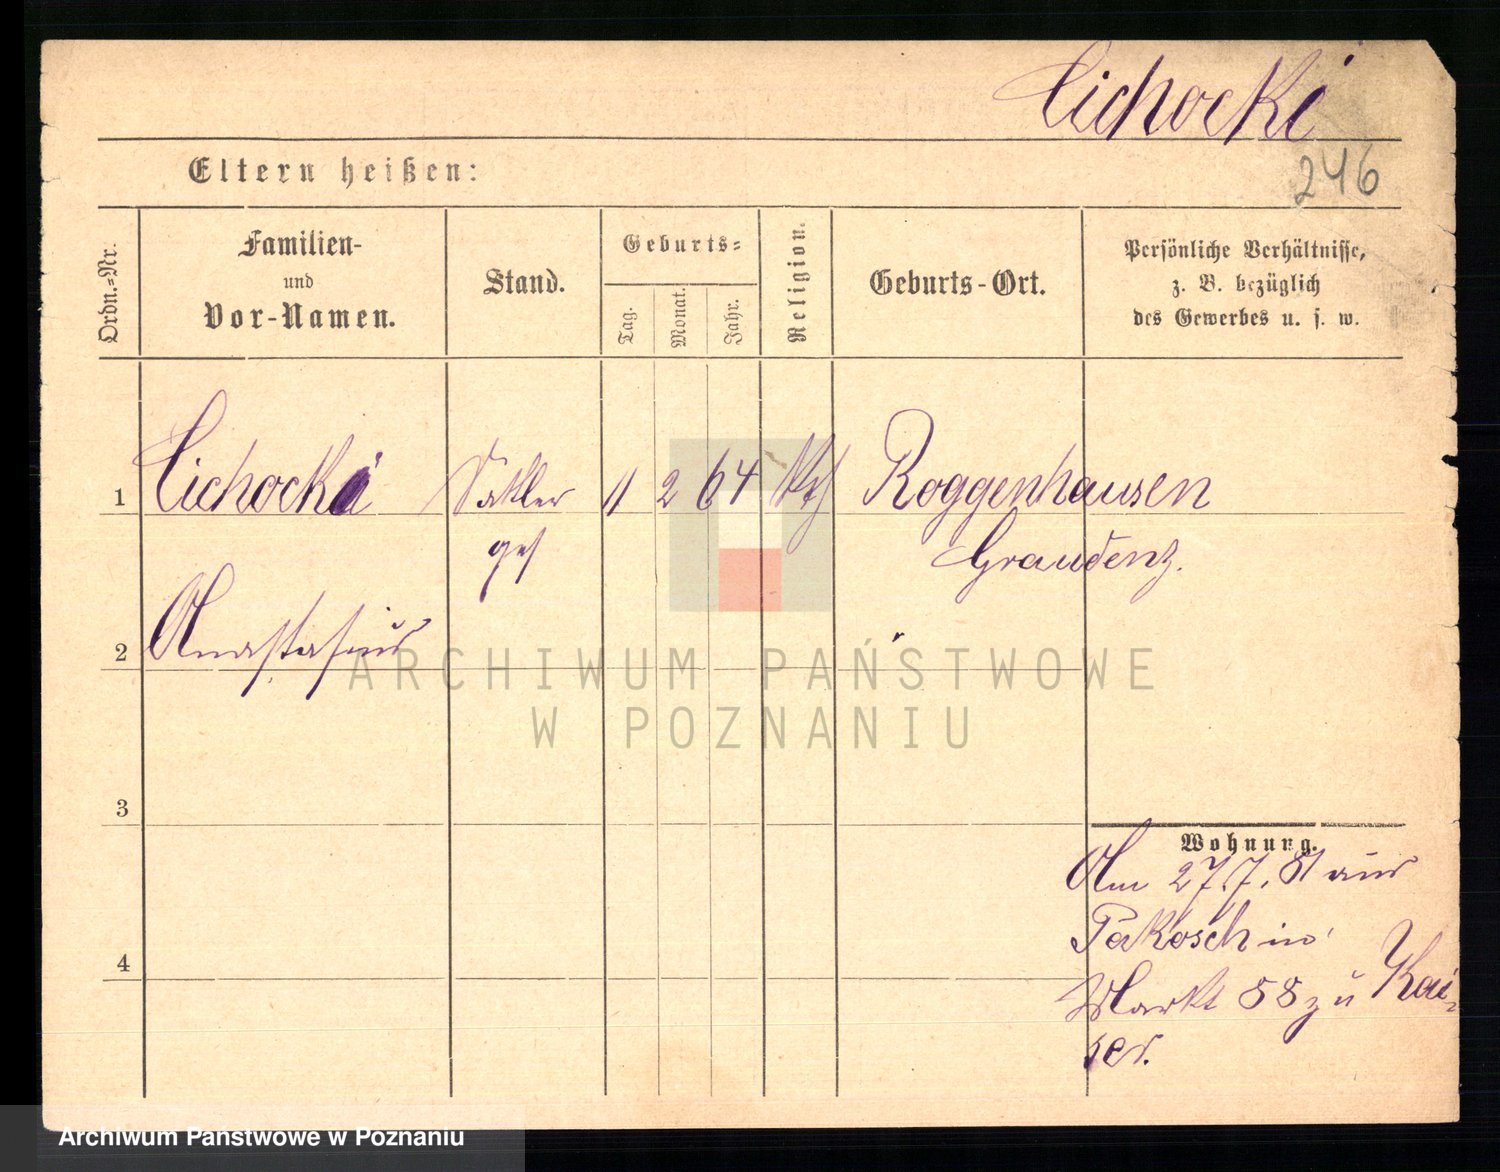 Cichocki
246
Eltern heißen:
Ordn.=Nr.
Familien-
und
Vor-Namen.
Stand.
Geburts=
Tag.
Monat.
Jahr.
Religion.
Geburts-Ort.
Persönliche Verhältnisse,
z. B. bezüglich
des Gewerbes u. s. w.
1 Cichocki Sattler 11 2 64 Kth Roggenhausen
ges Graudenz.
2 Anastasius
3
4
Wohnung.
Am 27.7. 81 aus
Pakosch in
Markt 88 zu Kai=
ser.
ARCHIWUM PAŃSTWOWE
W POZNANIU
Archiwum Państwowe w Poznaniu